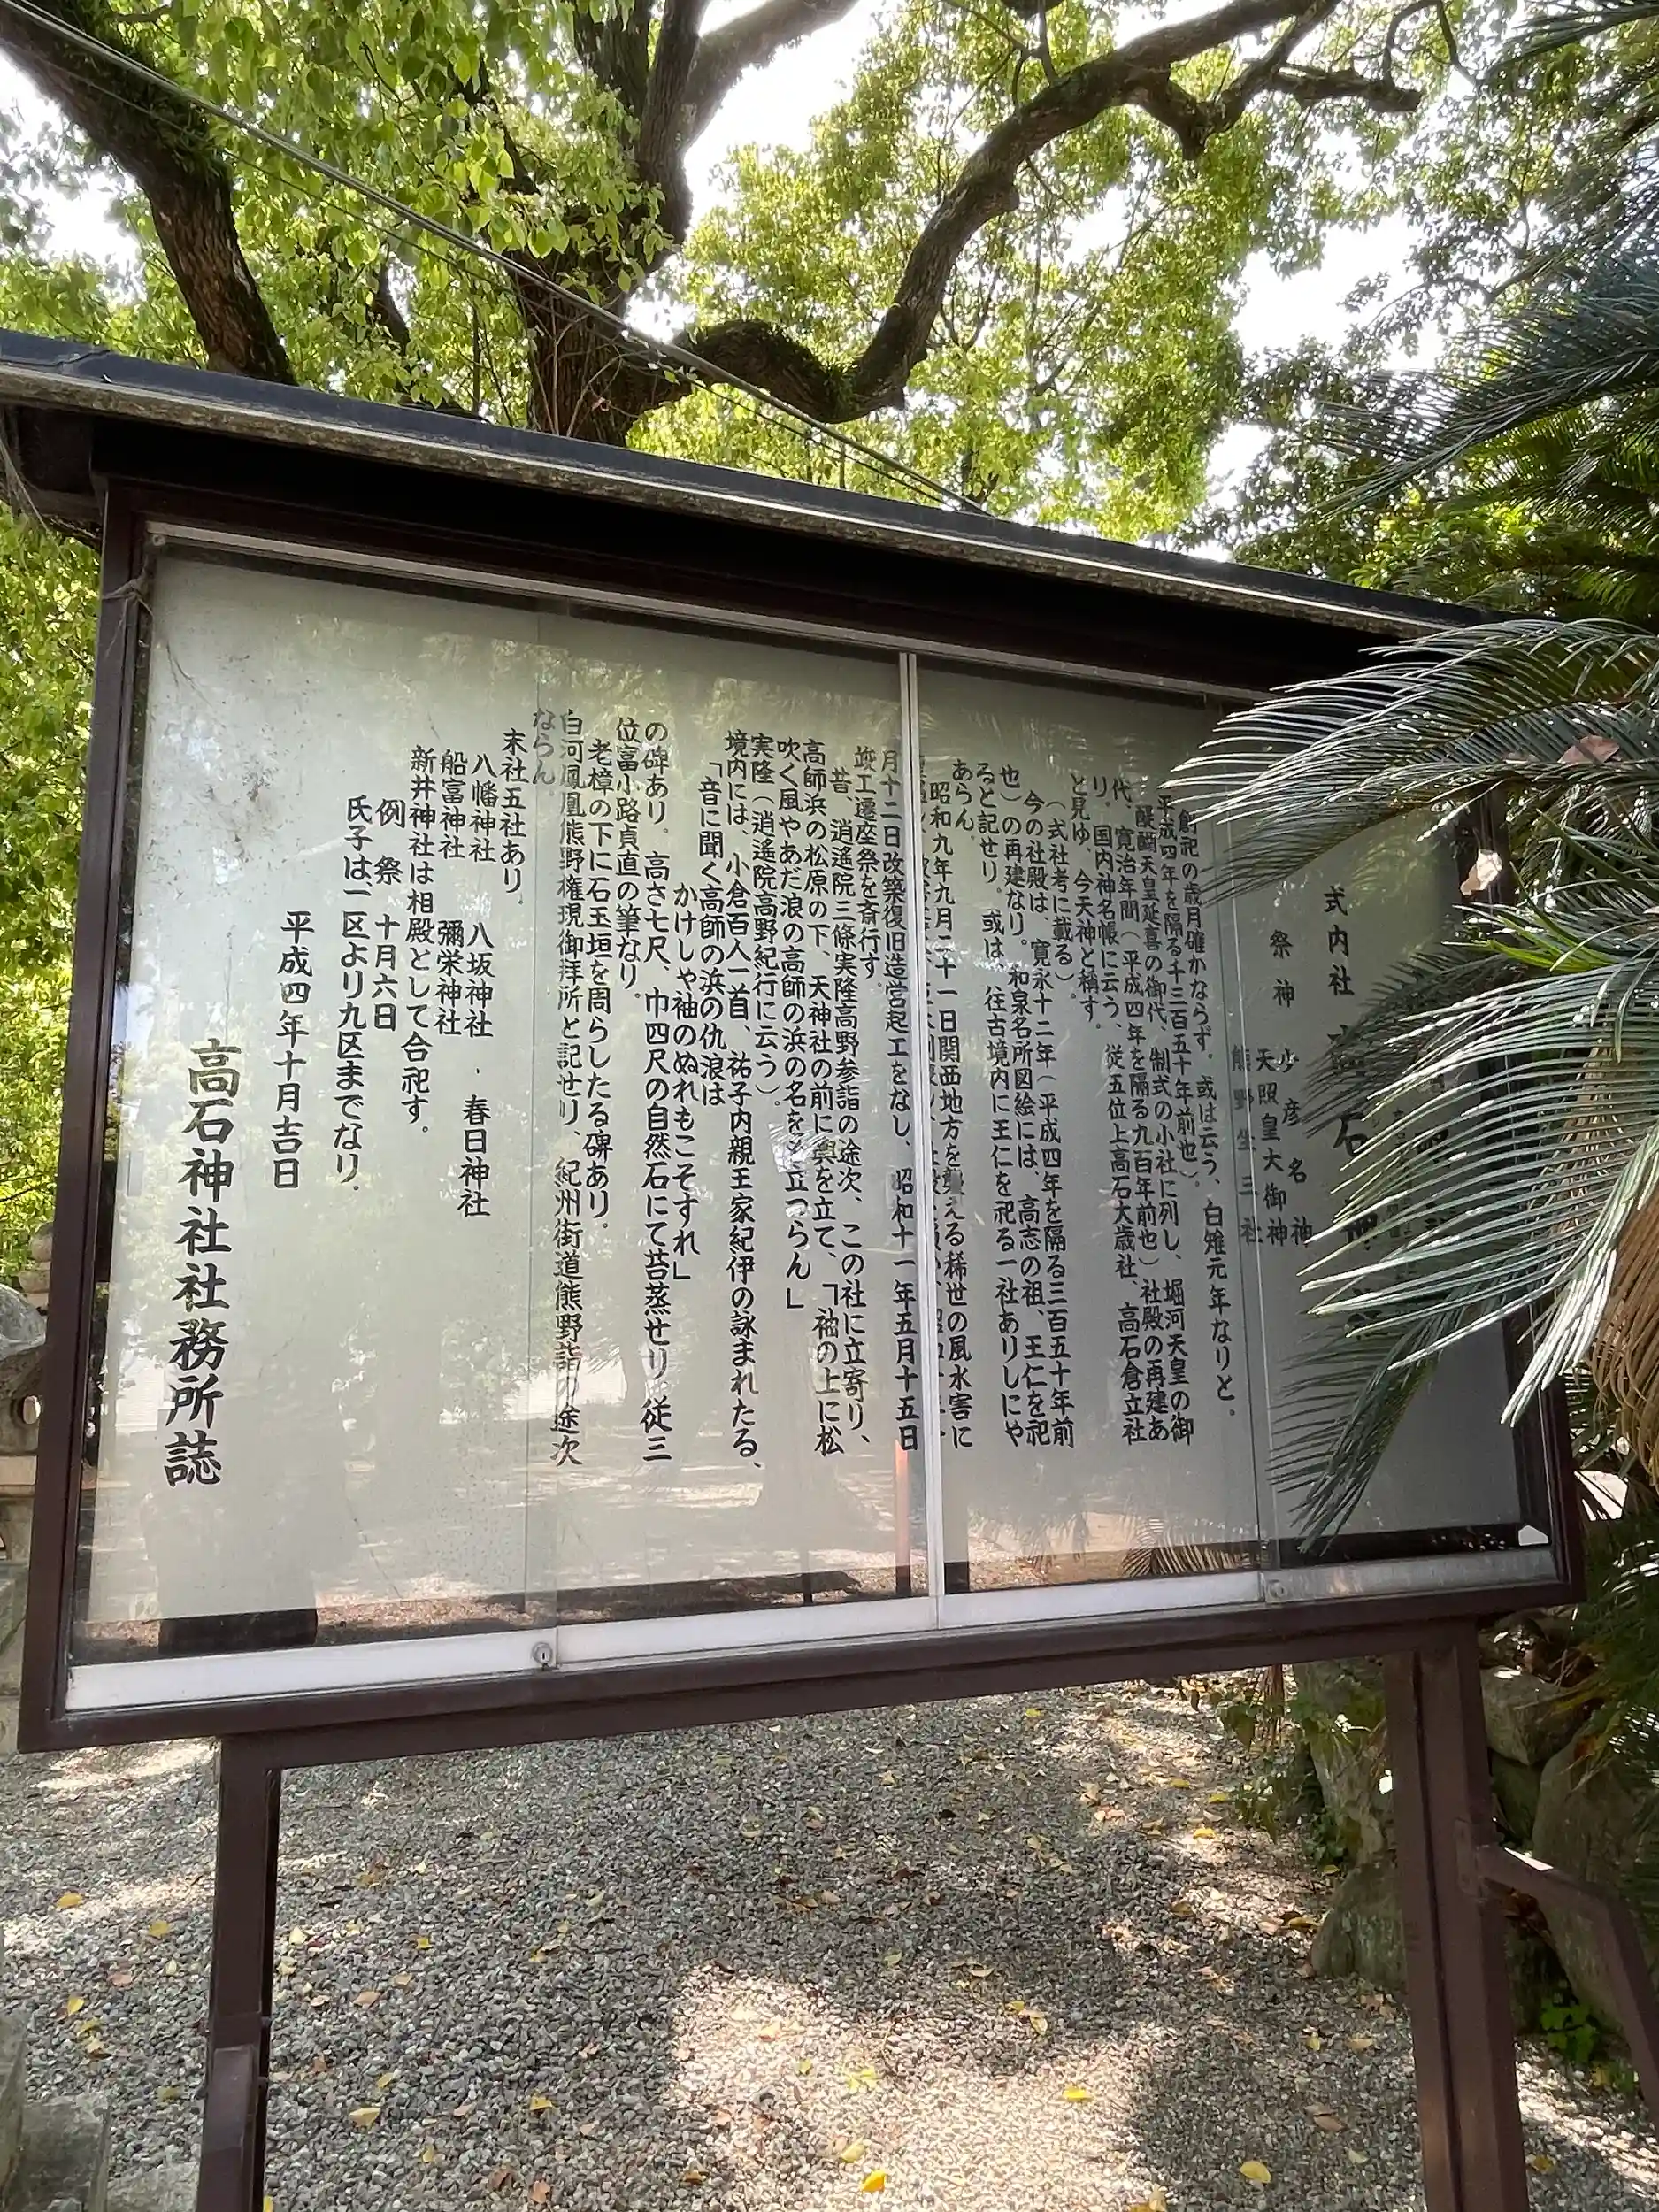 式内社 高石神社
祭神 少彦名神
天照皇大御神
熊野坐三社
創祀の歳月確かならず。或は云う、白雉元年なりと。
平成四年を隔る千三百五十年前也)。
醍醐天皇延喜の御代、制式の小社に列し、堀河天皇の御
代、寛治年間(平成四年を隔る九百年前也)社殿の再建あ
り。国内神名帳に云う、従五位上高石大歳社、高石倉立社
と見ゆ、今天神と稱す。
(式社考に載る)。
今の社殿は、寛永十二年(平成四年を隔る三百五十年前
也)の再建なり。和泉名所図絵には、高志の祖、王仁を祀
ると記せり。或は、往古境内に王仁を祀る一社ありしにや
あらん。
昭和九年九月二十一日関西地方を襲える稀世の風水害に
月十二日改築復旧造営起工をなし、昭和十一年五月十五日
竣工遷座祭を斎行す。
昔、逍遙院三條実隆高野参詣の途次、この社に立寄り、
高師浜の松原の下、天神社の前に輿を立て、「袖の上に松
吹く風やあだ浪の高師の浜の名をや立つらん」
実隆(逍遙院高野紀行に云う)。
境内には、小倉百人一首、祐子内親王家紀伊の詠まれたる、
「音に聞く高師の浜の仇浪は
かけしや袖のぬれもこそすれ」
の碑あり。高さ七尺、巾四尺の自然石にて苔蒸せり 従三
位富小路貞直の筆なり。
老樟の下に石玉垣を周らしたる碑あり。
白河鳳凰熊野権現御拝所と記せり、紀州街道熊野詣の途次
ならん。
末社五社あり。
八幡神社 八坂神社 . 春日神社
船富神社 彌栄神社
新井神社は相殿として合祀す。
例祭 十月六日
氏子は、一区より九区までなり.
平成四年十月吉日
高石神社社務所誌